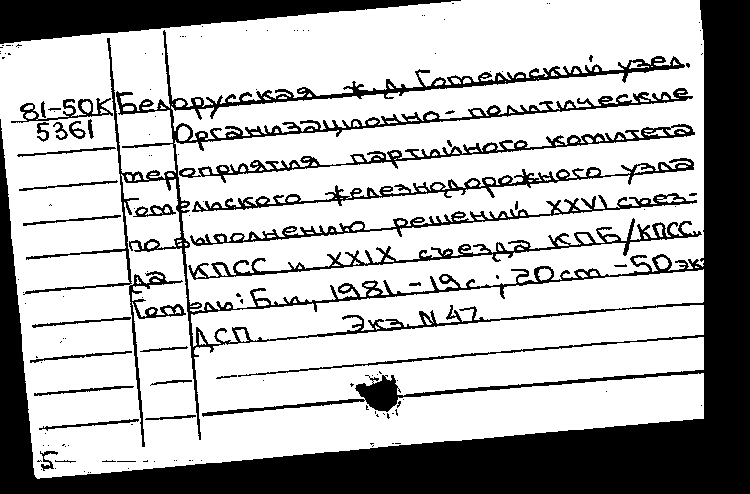 81-50К Белорусская ж.д. Гомельский узел.
5361 Организационно-политические
мероприятия партийного комитета
Гомельского железнодорожного узла
по выполнению решений XXVI съез-
да КПСС и XXIX съезда КПБ/КПСС.
Гомель: Б.и., 1981.-19с.; 20см -50эк
ДСП. Экз. N 47.
5